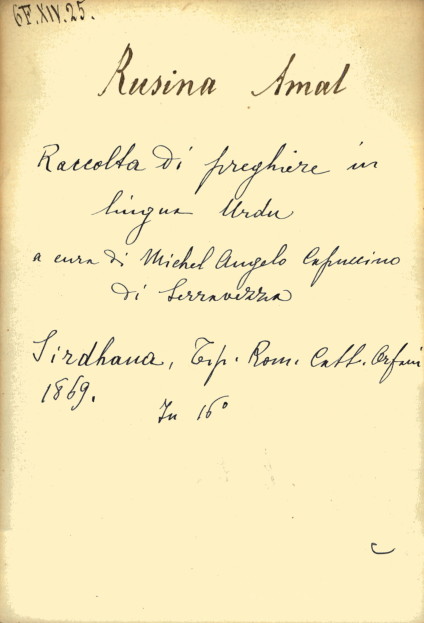 6F.XIV.25.
Rusina Amal
Raccolta di preghiere in
lingua Urdu
a cura di Michel Angelo Capuccino
di Serravezza
Sirdhana, Tip. Rom. Catt. Orfani
1869.
In 16°